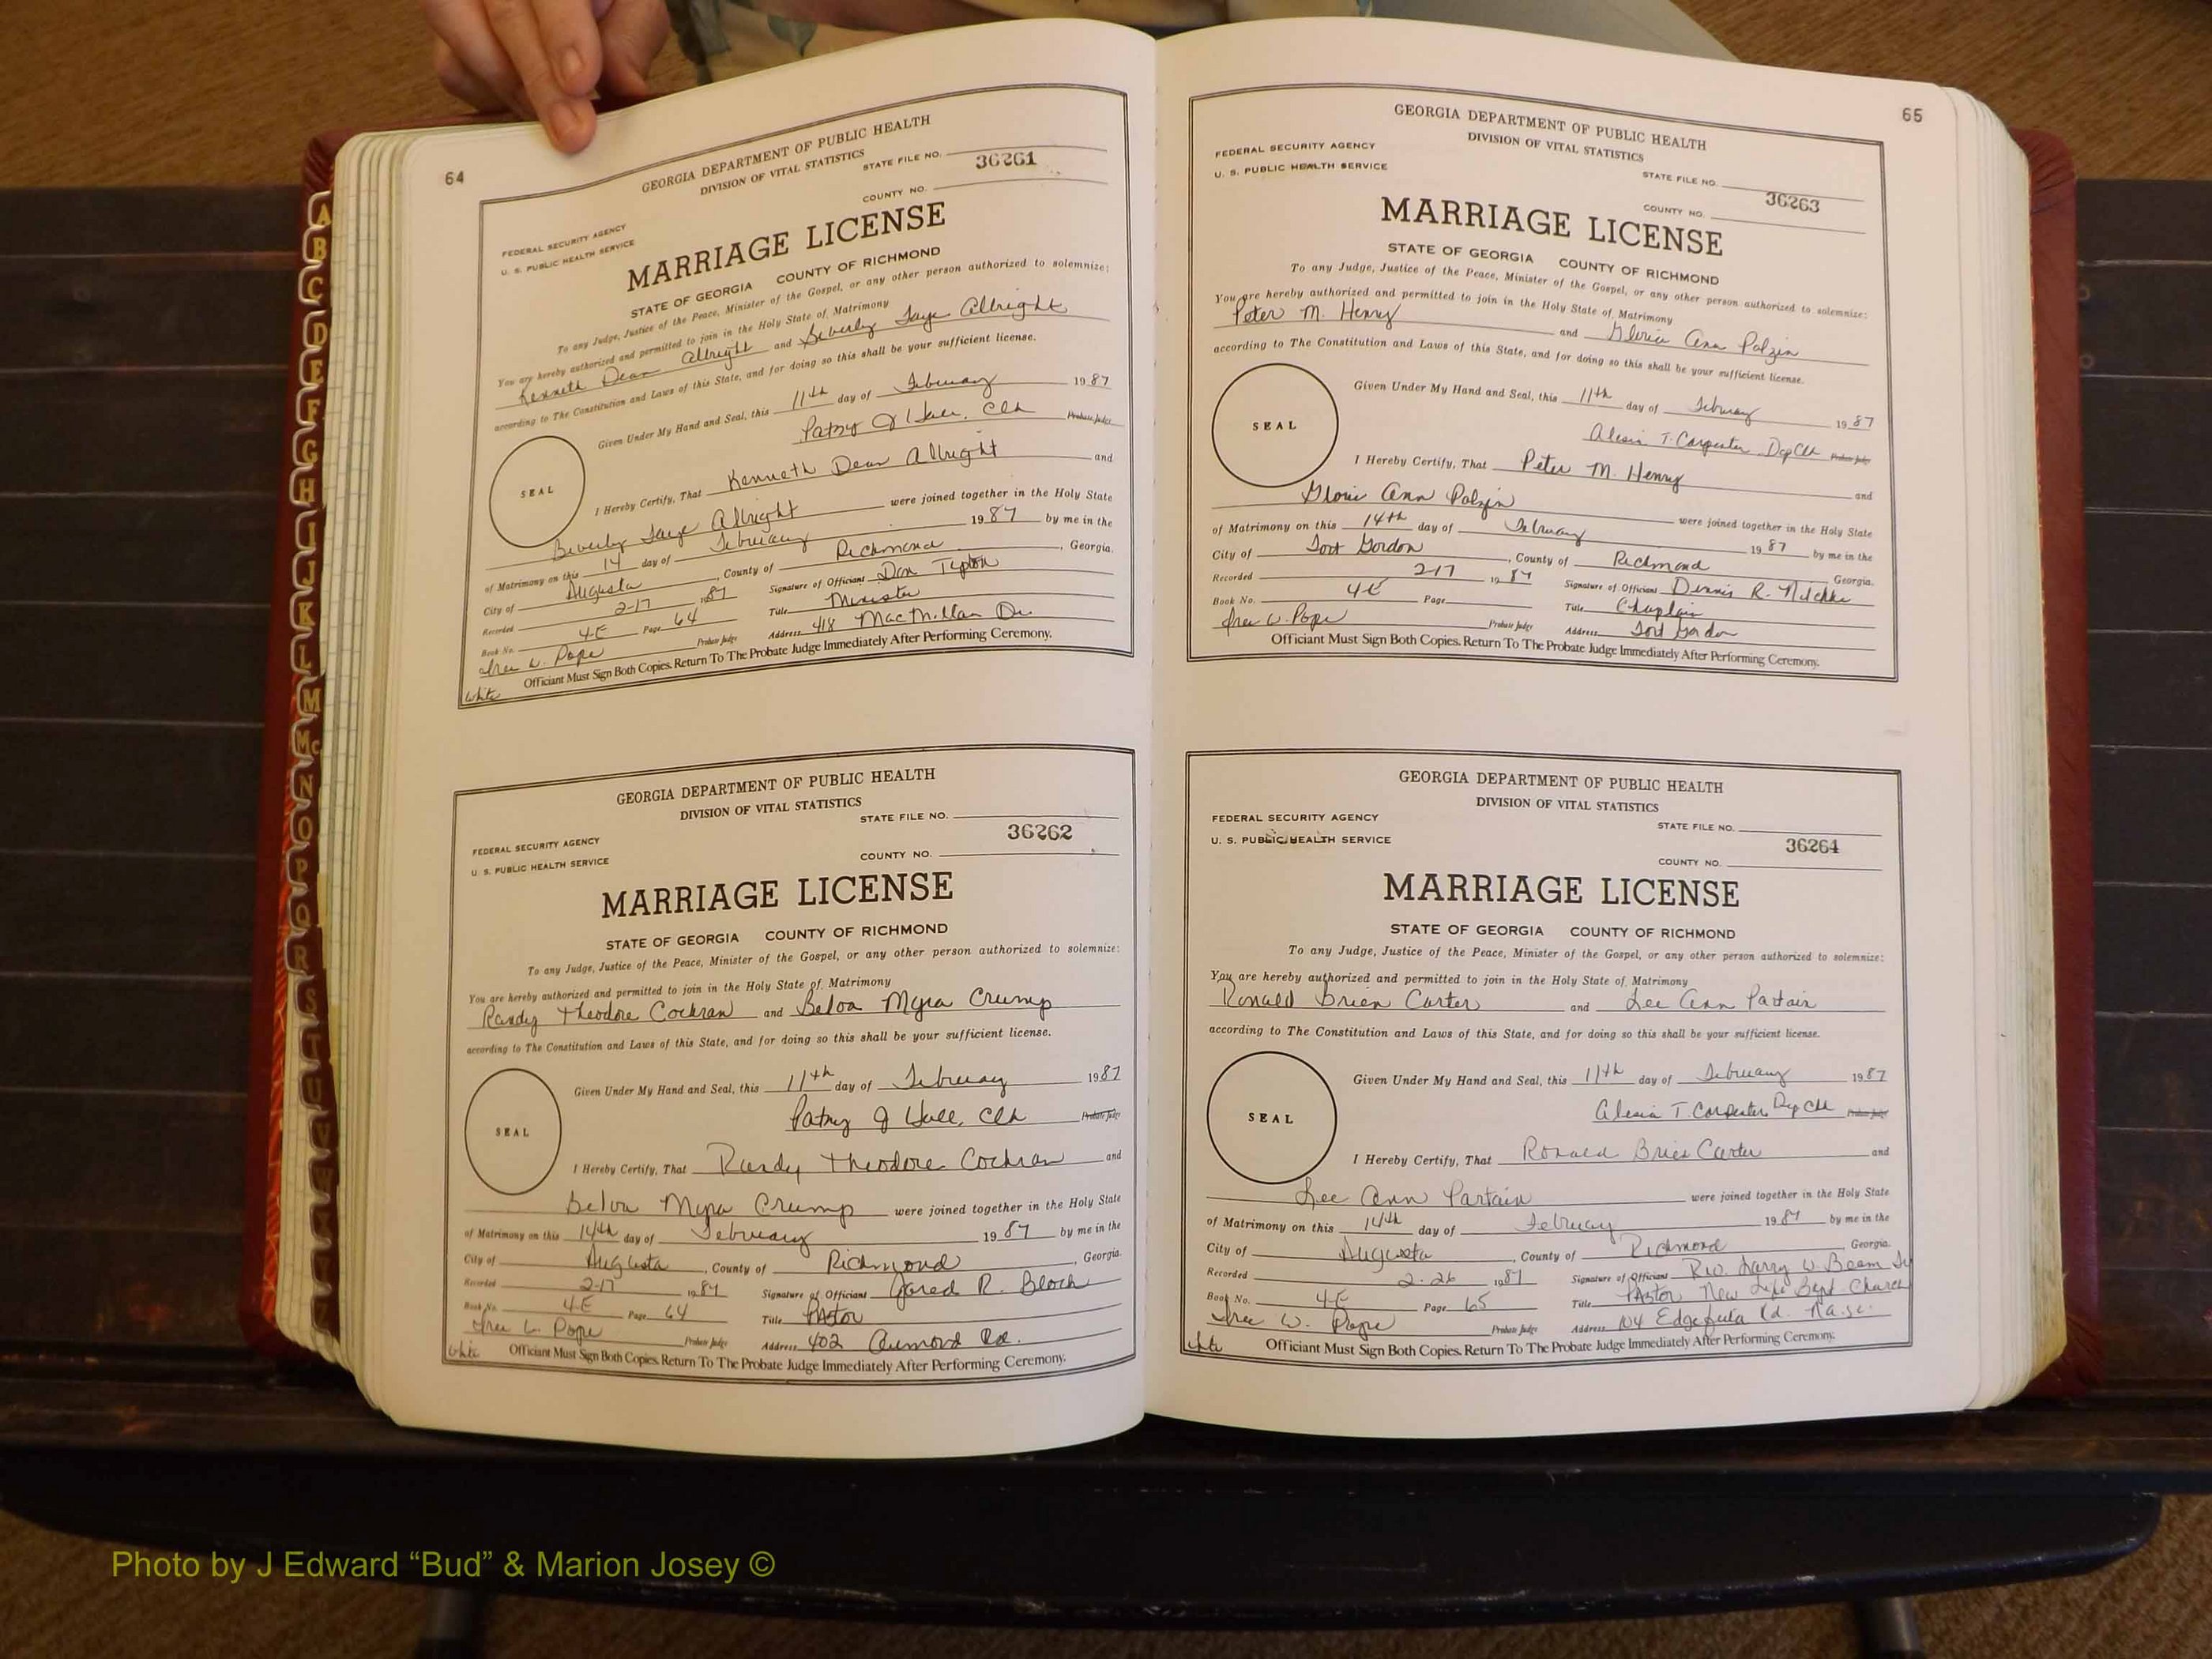 64
GEORGIA DEPARTMENT OF PUBLIC HEALTH
DIVISION OF VITAL STATISTICS
STATE FILE NO. 36261
COUNTY NO.
FEDERAL SECURITY AGENCY
U. S. PUBLIC HEALTH SERVICE
MARRIAGE LICENSE
STATE OF GEORGIA COUNTY OF RICHMOND
To any Judge, Justice of the Peace, Minister of the Gospel, or any other person authorized to solemnize:
You are hereby authorized and permitted to join in the Holy State of Matrimony
Kenneth Dean Albright and Beverly Faye Albright
according to The Constitution and Laws of this State, and for doing so this shall be your sufficient license.
Given Under My Hand and Seal, this 11th day of February 1987
Patsy J Hall, Clk Probate Judge
SEAL
I Hereby Certify, That Kenneth Dean Albright and
Beverly Faye Albright were joined together in the Holy State
of Matrimony on this 14 day of February 1987 by me in the
City of Augusta, County of Richmond, Georgia.
Recorded 2-17 1987 Signature of Officiant Don Tipton
Book No. 4E Page 64 Title Minister
W. Pope Probate Judge Address 418 MacMillan Dr
Officiant Must Sign Both Copies. Return To The Probate Judge Immediately After Performing Ceremony.
White
GEORGIA DEPARTMENT OF PUBLIC HEALTH
DIVISION OF VITAL STATISTICS
STATE FILE NO. 36262
COUNTY NO.
FEDERAL SECURITY AGENCY
U. S. PUBLIC HEALTH SERVICE
MARRIAGE LICENSE
STATE OF GEORGIA COUNTY OF RICHMOND
To any Judge, Justice of the Peace, Minister of the Gospel, or any other person authorized to solemnize:
You are hereby authorized and permitted to join in the Holy State of Matrimony
Randy Theodore Cochran and Belva Myra Crump
according to The Constitution and Laws of this State, and for doing so this shall be your sufficient license.
Given Under My Hand and Seal, this 11th day of February 1987
Patsy J Hall, Clk Probate Judge
SEAL
I Hereby Certify, That Randy Theodore Cochran and
Belva Myra Crump were joined together in the Holy State
of Matrimony on this 14th day of February 1987 by me in the
City of Augusta, County of Richmond, Georgia.
Recorded 2-17 1987 Signature of Officiant Jared R. Bloch
Book No. 4E Page 64 Title Pastor
Pope Probate Judge Address 402 Aumond Rd.
White Officiant Must Sign Both Copies. Return To The Probate Judge Immediately After Performing Ceremony.
65
GEORGIA DEPARTMENT OF PUBLIC HEALTH
DIVISION OF VITAL STATISTICS
FEDERAL SECURITY AGENCY
U. S. PUBLIC HEALTH SERVICE
STATE FILE NO. 36263
COUNTY NO.
MARRIAGE LICENSE
STATE OF GEORGIA COUNTY OF RICHMOND
To any Judge, Justice of the Peace, Minister of the Gospel, or any other person authorized to solemnize:
You are hereby authorized and permitted to join in the Holy State of Matrimony
Peter M. Henry and Gloria Ann Polzin
according to The Constitution and Laws of this State, and for doing so this shall be your sufficient license.
Given Under My Hand and Seal, this 11th day of February 1987
Alesia T. Carpenter Dep Clk Probate Judge
SEAL
I Hereby Certify, That Peter M. Henry and
Gloria Ann Polzin were joined together in the Holy State
of Matrimony on this 14th day of February 1987 by me in the
City of Fort Gordon, County of Richmond Georgia.
Recorded 2-17 1987 Signature of Officiant Dennis R.
Book No. 4E Page Title Chaplain
W. Pope Probate Judge Address Fort Gordon
Officiant Must Sign Both Copies. Return To The Probate Judge Immediately After Performing Ceremony.
GEORGIA DEPARTMENT OF PUBLIC HEALTH
DIVISION OF VITAL STATISTICS
FEDERAL SECURITY AGENCY
U. S. PUBLIC HEALTH SERVICE
STATE FILE NO. 36264
COUNTY NO.
MARRIAGE LICENSE
STATE OF GEORGIA COUNTY OF RICHMOND
To any Judge, Justice of the Peace, Minister of the Gospel, or any other person authorized to solemnize:
You are hereby authorized and permitted to join in the Holy State of Matrimony
Ronald Brien Carter and Lee Ann Partain
according to The Constitution and Laws of this State, and for doing so this shall be your sufficient license.
Given Under My Hand and Seal, this 11th day of February 1987
Alesia T. Carpenter Dep Clk Probate Judge
SEAL
I Hereby Certify, That Ronald Brien Carter and
Lee Ann Partain were joined together in the Holy State
of Matrimony on this 14th day of February 1987 by me in the
City of Augusta, County of Richmond Georgia.
Recorded 2-26 1987 Signature of Officiant Rev. Larry W. Beam
Book No. 4E Page 65 Title Pastor New Life Bapt. Church
W. Pope Probate Judge Address 104 Rd. N.A.S.C.
White Officiant Must Sign Both Copies. Return To The Probate Judge Immediately After Performing Ceremony.
A
B
C
D
E
F
G
H
I
J
K
L
M
Mc
N
O
P
Q
R
S
T
U
V
W
Photo by J Edward “Bud” & Marion Josey ©